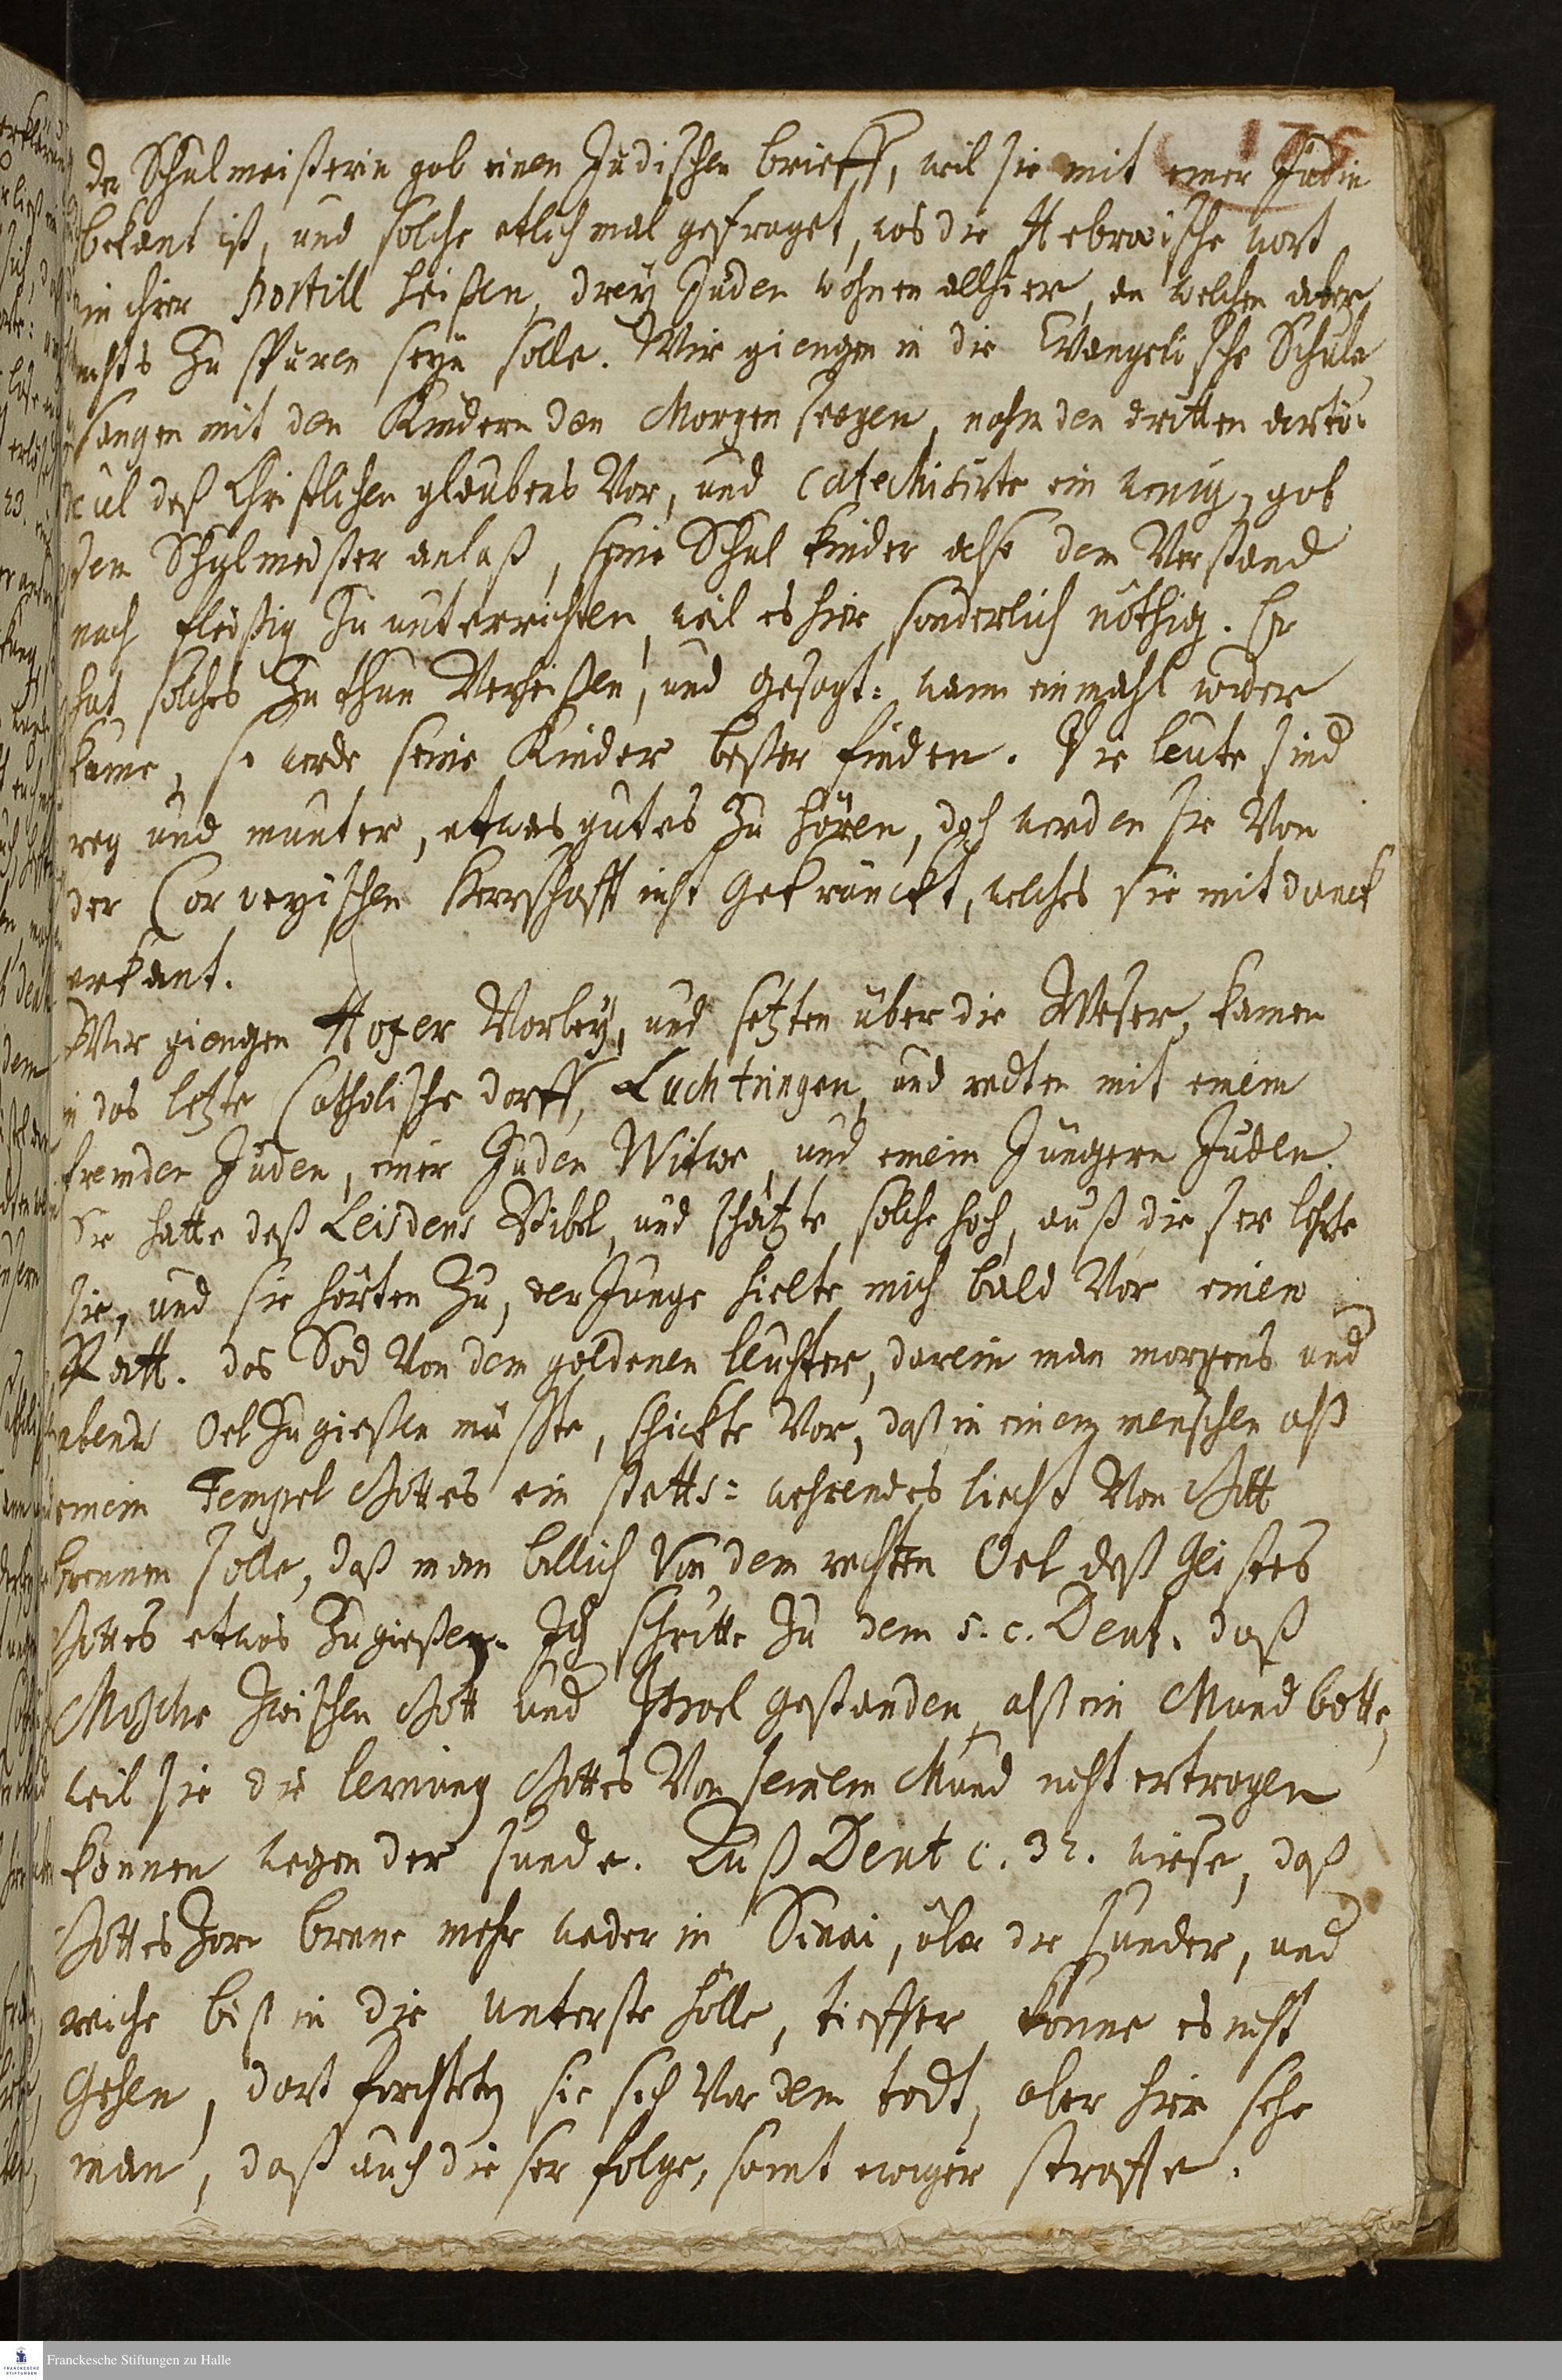 175
der Schulmeisterin gab einen Judischen brieff, weil sie mit einer Jüdin
bekant ist, und solche etlich mal gefraget, was die Hebraische wort
in ihrer Postill heißen, drey Juden wohnen allhier, an welchen aber
nichts zu spuren seyn solle. Wir giengen in die Evangelische Schule,
sangen mit den Kindern den Morgen seegen, nahm den dritten articu-
cul deß Christlichen glaubens Vor, und Catechisirte ein wenig, gab
dem Schulmeister anlaß, seine Schul kinder also dem Verstand
nach fleißig zu unterrichten, weil es hier sonderlich nöthig. Er
hat solches zu thun Verheißen, und gesagt: wann einmahl wider
kame, so werde seine Kinder beßer finden. Die leute sind
reg und munter, etwas gutes zu hören, doch werden sie Von
der Corveyischen Herrschafft nicht gekränckt, welches sie mit danck
erkant.
Wir giengen Hoxer Vorbey, und setzten über die Weser, kamen
in das letzte Catholische dorff, Luchtringen, und redten mit einem
fremden Juden, einer Juden Witwe, und einem Jungern Juden.
Sie hatte deß Leisdens Bibel, und schätzte solche hoch, auß dieser lehrte
sie, und sie hörten zu, der Junge hielte mich bald Vor einen
Ratt. das Sod Von dem goldenen leuchter, darein man morgens und
abends Oel zugießen müßte, schickte Vor, daß in einem menschen alß
einem Tempel Gottes ein stetts: wehrendes liecht Von Gott
brennen solle, daß man billich Von dem rechten Oel deß Geistes
Gottes etwas zugießen. Ich schritte zu dem 5. c. Deut. daß
Mosche zwischen Gott und Israel gestanden, alß ein Mund botte,
weil sie die lernung Gottes Von seinem Mund nicht ertragen
konnen wegen der sunde. Auß Deut c. 32. wiese, daß
Gottes Zorn brenne mehr weder in Sinai, über die sunder, und
reiche biß in die unterste hölle, tieffer könne es nicht
gehen, dort forchteten sie sich Vor dem todt, aber hier sehe
man, daß auch dieser folge, samt ewiger straffe.
Franckesche Stiftungen zu Halle